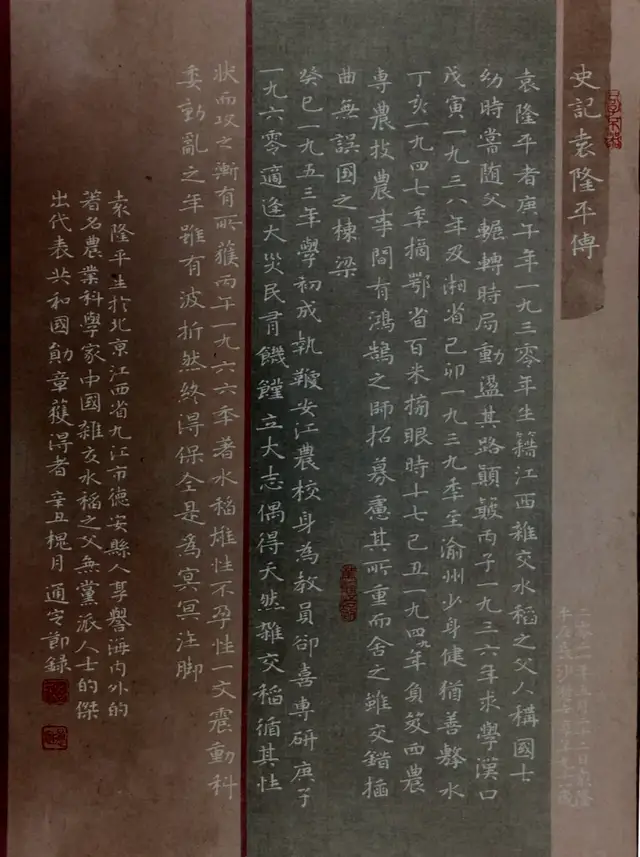 史記袁隆平傳
二零二一年五月二十二日袁隆
平在長沙逝世享年九十一歲
袁隆平者庚午年一九三零年生籍江西雜交水稻之父人稱國士
幼時嘗随父輾轉時局動盪其路顛皷丙子一九三六年求學漢口
戊寅一九三八年及湘省己卯一九三九季至渝州少身健猶善水
丁亥一九四七季摘鄂省百米榜眼時十七己丑一九四九年負笈西農
專農技農事間有鴻鵠之師招募慮其所重而舍之雖交錯插
曲無誤國之棟梁
癸巳一九五三年學初成執鞭安江農校身為教員卻喜專研庚子
一九六零適逢大災民胥饑饉立大志偶得天然雜交稻循其性
狀而攻之漸有所獲丙午一九六六季著水稻雄性不孕性一文震動科
委動亂之年雖有波折然終得保全是為冥冥注脚
袁隆平生於北京江西省九江市德安縣人享譽海内外的
著名農業科學家中國雜交水稻之父無黨派人士的傑
出代表共和國勛章獲得者 辛丑槐月 通安節録